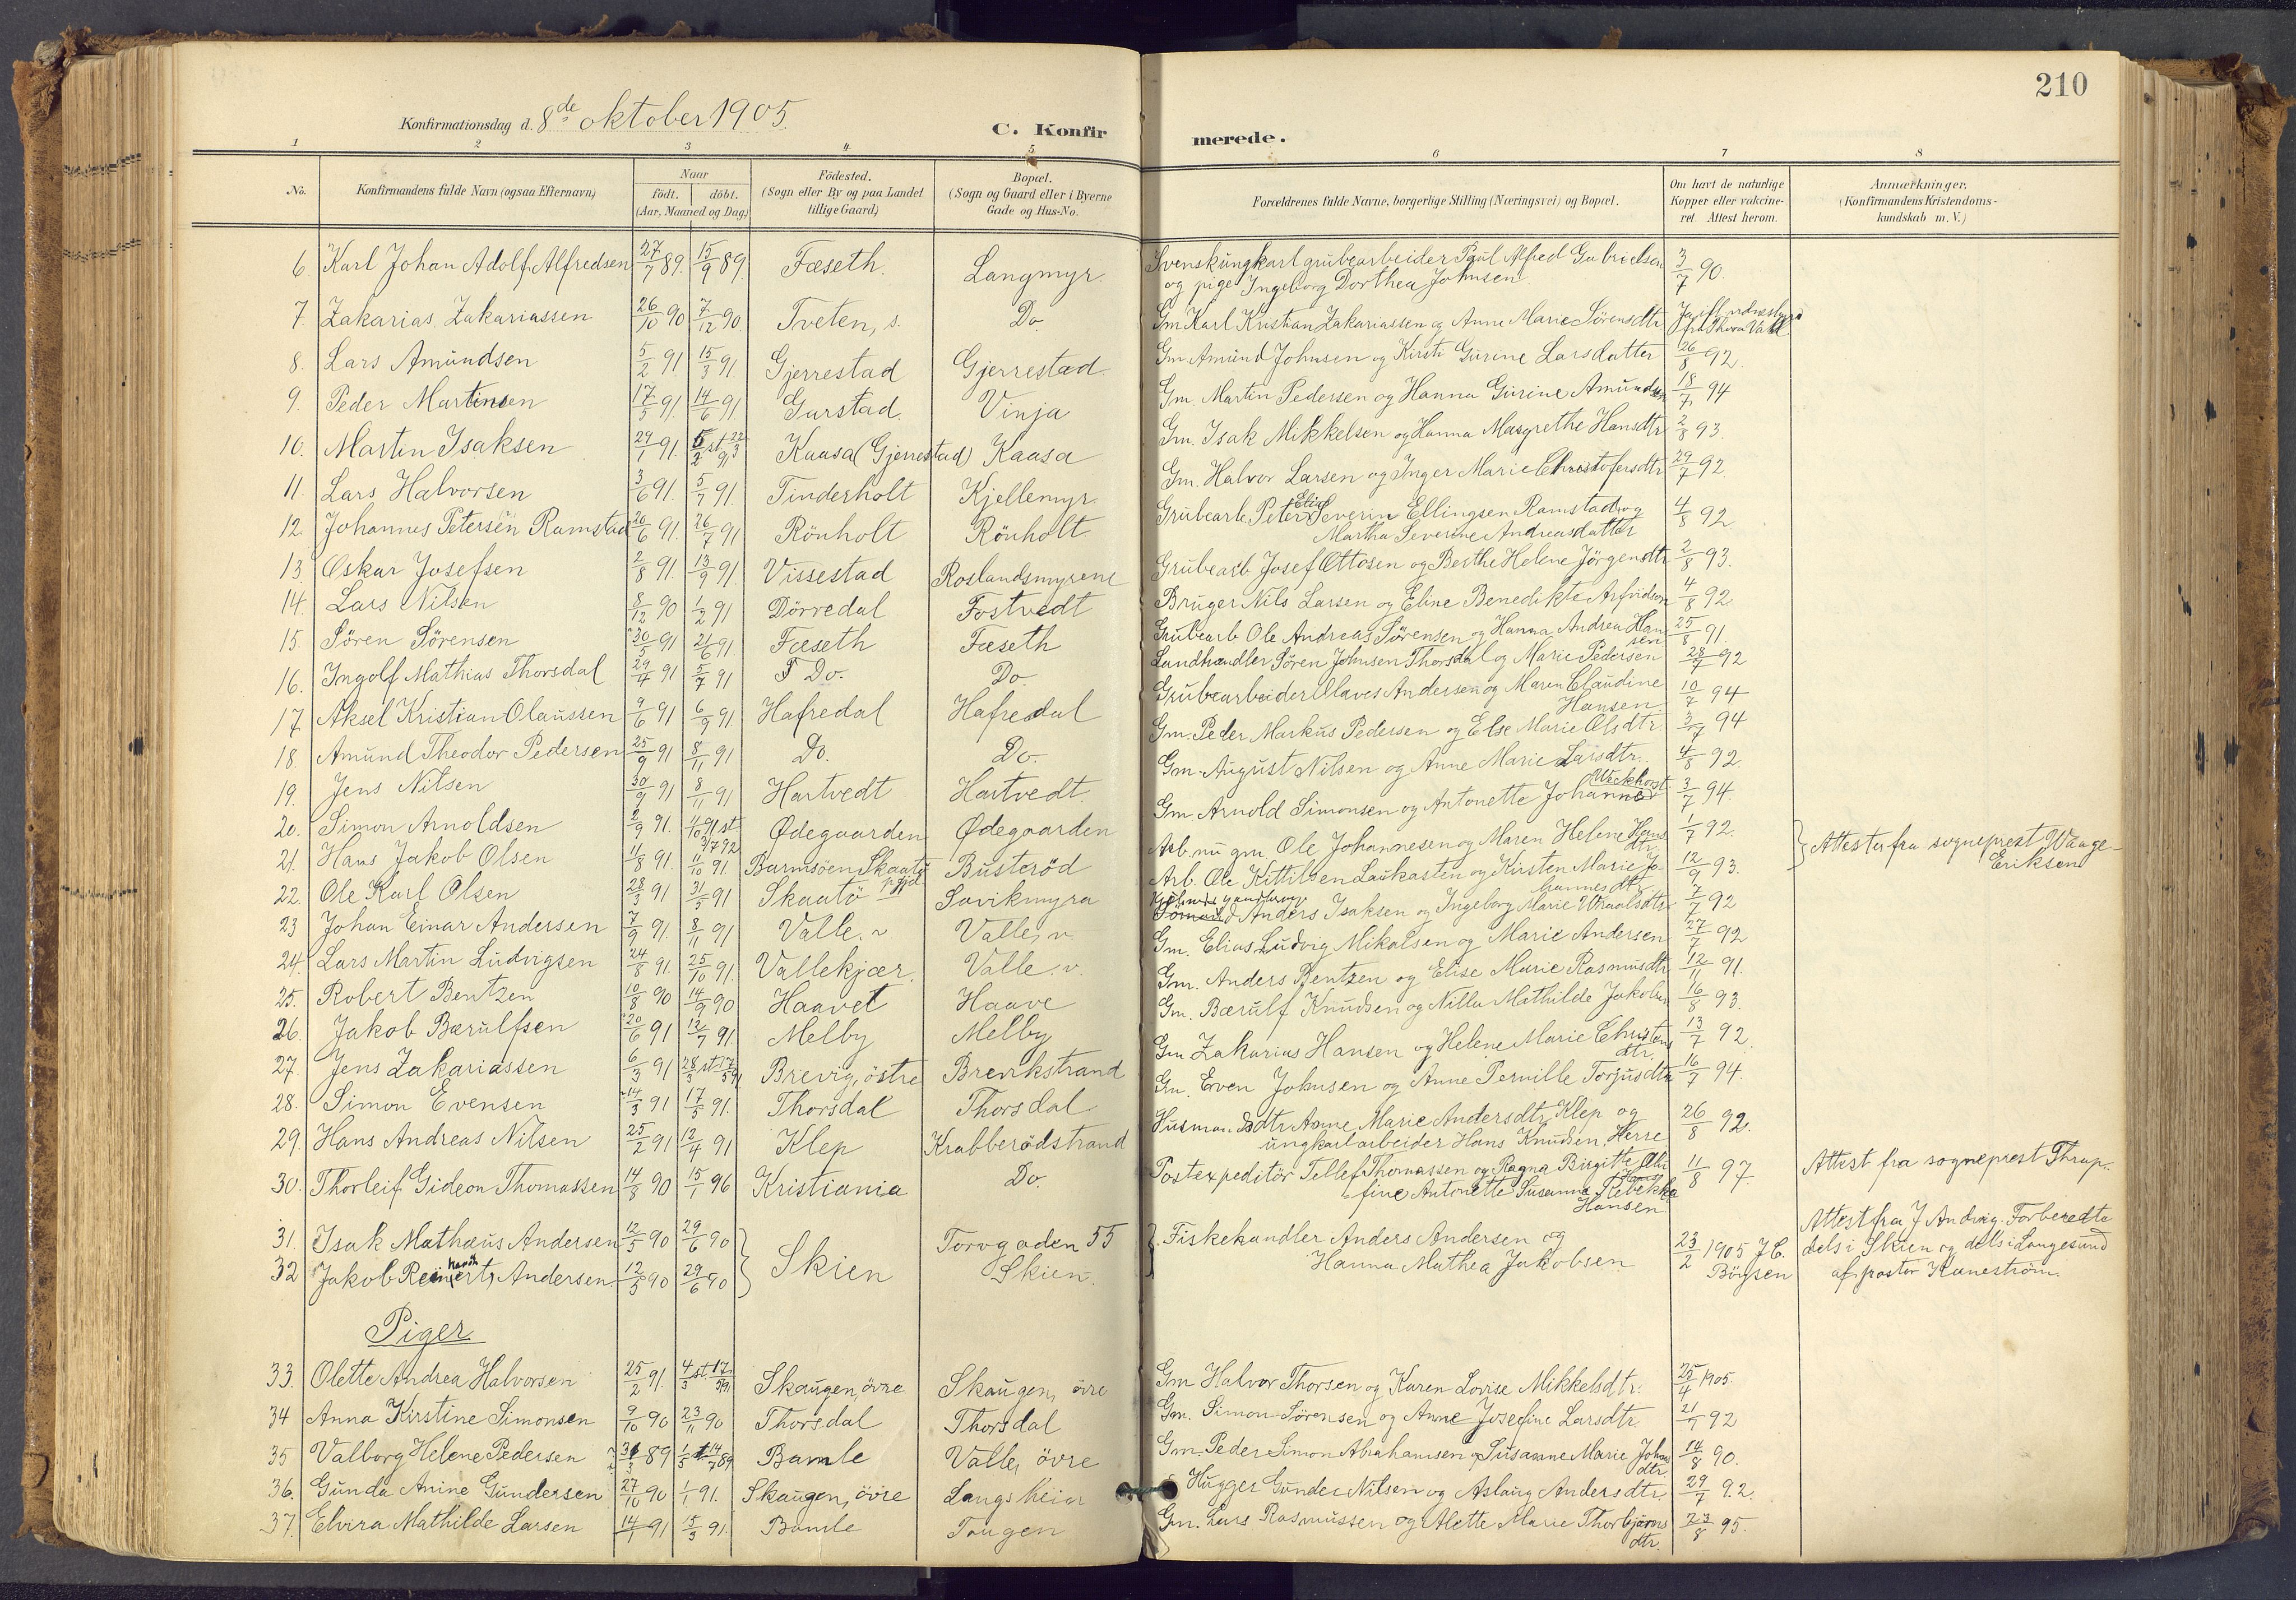 210
Konfirmationsdag d. 8de oktober 1905.
C. Konfirmerede.
1 2 3 4 5 6 7 8
No. Konfirmandens fulde Navn (ogsaa Efternavn) Naar födt. döbt. (Aar, Maaned og Dag) Födested. (Sogn eller By og paa Landet tillige Gaard) Bopæl. (Sogn og Gaard eller i Byerne Gade og Hus-No. Forældrenes fulde Navne, borgerlige Stilling (Næringsvei) og Bopæl. Om havt de naturlige Kopper eller vakcineret. Attest herom. Anmærkninger. (Konfirmandens Kristendomskundskab m. V.)
6. Karl Johan Adolf Alfredsen 27/7 89. 15/9 89. Fæseth. Langmyr. Svensk ungkarl grubearbeider Paul Alfred Gabrielsen og pige Ingeborg Dorthea Johnsen. 3/7 90.
7. Zakarias Zakariassen 26/10 90 7/12 90. Tveten, s. Do. Gm Karl Kristian Zakariassen og Anne Marie Sörensdtr
8. Lars Amundsen 5/2 91. 15/3 91 Gjerrestad Gjerrestad. Gm Amund Johnsen og Kirsti Gurine Larsdatter 26/8 92.
9. Peder Martinsen 17/5 91. 14/6 91. Gurstad. Vinja Gm. Martin Pedersen og Hanna Gurine Amundsen 18/7 94
10. Martin Isaksen 29/1 91. 5/2 st 22/3 91 Kaasa (Gjerrestad) Kaasa Gm. Isak Mikkelsen og Hanna Margrethe Hansdtr 2/8 93.
11. Lars Halvorsen 3/6 91. 5/7 91. Tinderholt Kjellemyr. Gm. Halvor Larsen og Inger Marie Christofersdtr 29/7 92.
12. Johannes Petersen Ramstad 20/6 91. 26/7 91 Rönholt Rönholt Grubearb. Peter Elias Severin Ellingsen Ramstad og Martha Severine Andreasdatter 4/8 92
13. Oskar Josefsen 2/8 91. 13/9 91. Vissestad Roslandsmyrene Grubearb Josef Ottosen og Berthe Helene Jörgensdtr 2/8 93.
14. Lars Nilsen 8/12 90 1/2 91 Dörredal Fostvedt Bruger Nils Larsen og Eline Benedikte Arfvidson 4/8 92
15. Sören Sörensen 30/5 91 21/6 91 Fæseth Fæseth Grubearb Ole Andreas Sörensen og Hanna Andrea Hansen 25/8 91.
16. Ingolf Mathias Thorsdal 29/4 91 5/7 91 Do. Do. Landhandler Sören Johnsen Thorsdal og Marie Pedersen 28/7 92
17. Aksel Kristian Olaussen 9/6 91 6/9 91 Hafredal Hafredal Grubearbeider Olaves Andersen og Maren Claudine Hansen 10/7 94
18. Amund Theodor Pedersen 25/9 91 8/11 91 Do. Do. Gm. Peder Markus Pedersen og Else Marie Olsdtr. 3/7 94
19. Jens Nilsen 30/9 91 8/11 91 Hartvedt Hartvedt. Gm. August Nilsen og Anne Marie Larsdtr. 4/8 92.
20. Simon Arnoldsen 2/9 91. 4/10 91 st 3/7 92 Ødegaarden Ødegaarden Gm. Arnold Simonsen og Antonette Johanne 3/7 94.
21. Hans Jakob Olsen 11/8 91. 11/10 91. Barmsöen Skaatö Busteröd Arb. nu gm. Ole Johannesen og Maren Helene Hansdtr. 1/7 92. Attester fra sogneprest Waage-Eriksen
22. Ole Karl Olsen 28/3 91 31/5 91 Skaatö Savikmyra Arb. Ole Kittilsen Laukasten og Kirsten Marie Johannesdtr 12/9 93.
23 Johan Einar Andersen 7/9 91. 8/11 91 Valle. v Valle, v. Anders Isaksen og Ingeborg Marie Wraalsdtr 7/7 92
24. Lars Martin Ludvigsen 24/8 91. 25/10 91. Vallekjær. Valle. v. Gm. Elias Ludvig Mikalsen og Marie Andersen 27/7 92
25. Robert Bentzen 10/8 90 14/9 90 Haavet Haave Gm. Anders Bentzen og Elise Marie Rasmusdtr 12/11 91.
26. Jakob Bærulfsen 20/6 91 12/7 91. Melby Melby Gm. Bærulf Knudsen og Nilla Mathilde Jakobsen 16/8 93.
27. Jens Zakariassen 6/3 91 28/3 st 17/5 91 Brevig, östre Brenkstrand Gm Zakarias Hansen og Helene Marie Christensdtr. 13/7 92.
28. Simon Evensen 14/3 91 17/5 91. Thorsdal Thorsdal Gm. Even Johnsen og Anne Pernille Torjusdtr 16/7 94.
29. Hans Andreas Nilsen 25/2 91 12/4 91 Klep Krabberödstrand Husmandsdtr Anne Marie Andersdtr, Klep og ungkarl arbeider Hans Knudsen, Herre 26/8 92.
30. Thorleif Gideon Thomassen 14/8 90 15/1 96 Kristiania Do. Postexpeditör Tellef Thomassen og Ragna Birgitte Antonette Susanne Rebekka Hansen 11/8 97 Attest fra sogneprest Thrap.
31. Isak Mathæus Andersen 12/5 90 29/6 90 Skien Torvgaden 55 Skien. Fiskehandler Anders Andersen og Hanna Mathea Jakobsen 23/2 1905 J C. Böysen Attest fra J Andvig. Forberedte dels i Skien og dels i Langesund af pastor Kaneström.
32 Jakob Reinert Andersen 12/5 90 29/6 90
Piger
33. Olette Andrea Halvorsen 25/2 91. 4/3 st 17/5 91 Skaugen, övre Skaugen, övre Gm Halvor Thorsen og Karen Lovise Mikkelsdtr. 25/4 1905.
34 Anna Kirstine Simonsen 9/10 90 23/11 90 Thorsdal Thorsdal Gm. Simon Sörensen og Anne Josefine Larsdtr. 21/7 92
35 Valborg Helene Pedersen 31/3 89 1/5 st 14/7 89 Bamle Valle, övre Gm. Peder Simon Abrahamsen og Susanne Marie Johnsdtr 14/8 90.
36. Gunda Anine Gundersen 27/10 90 1/1 91. Skaugen, övre Langsheier Hugger Gunder Nilsen og Aslaug Andersdtr. 29/7 92.
37. Elvira Mathilde Larsen 14/1 91 15/3 91. Bamle Tangen Gm. Lars Rasmussen og Alette Marie Thorbjørnsdtr. 23/8 95.